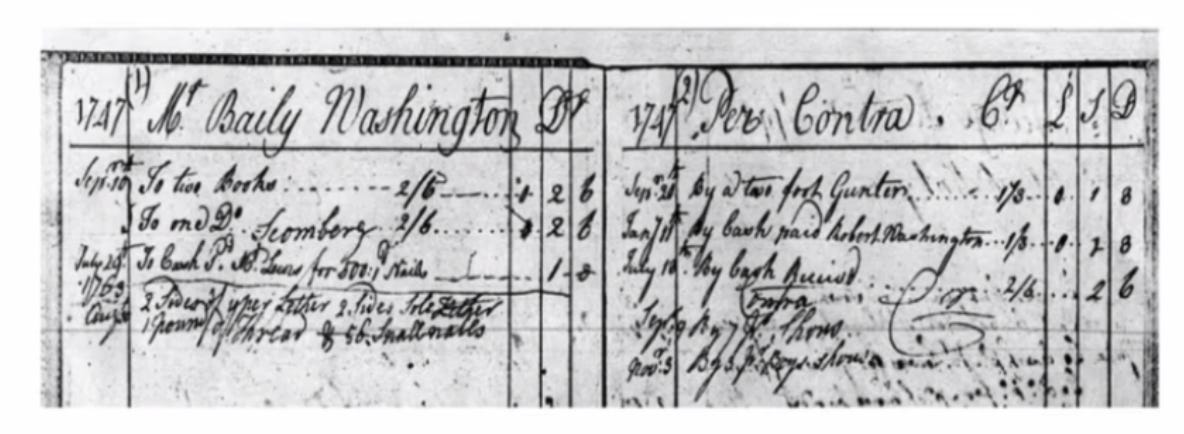 1747 (1) Mr. Baily Washington Dr
Sepr. 10 To two Books 2/6 0 2 6
To one Do. Scomberg 2/6 0 2 6
July 29 To Cash Pd. Mr. Lewis for 500 Nails 1 3
1763 2 Sides of uper Lether 2 Sides Sole Lether
Augt 1 pound of thread & 56 Small nalls
1747 (2) Per Contra Cr £ S D
Sepr. 20th By a two foot Gunter 1/3 0 1 3
Jany 11th By Cash paid Robert Washington 1/3 0 1 3
July 10th By Cash Receivd 2/6 2 6
Contra
Sept. 9 By 7 pr Shous
Novr. 3 By 3 pr. Boys shous